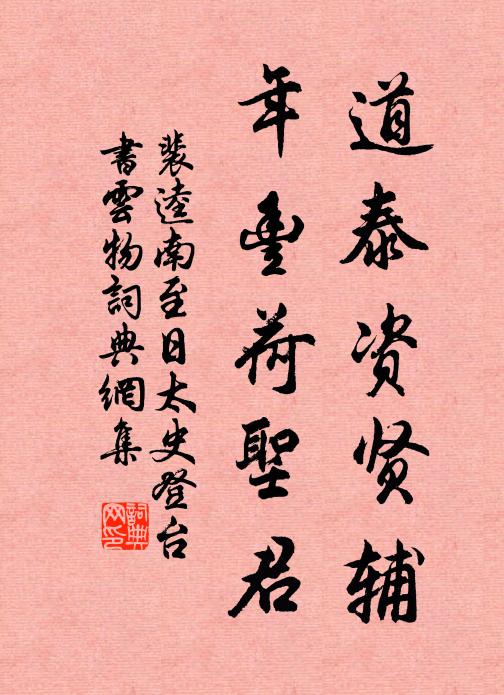 道泰资贤辅
年豊荷聖君
裴逵南至日太史登台
書雲物詞典網集
詞典
网印